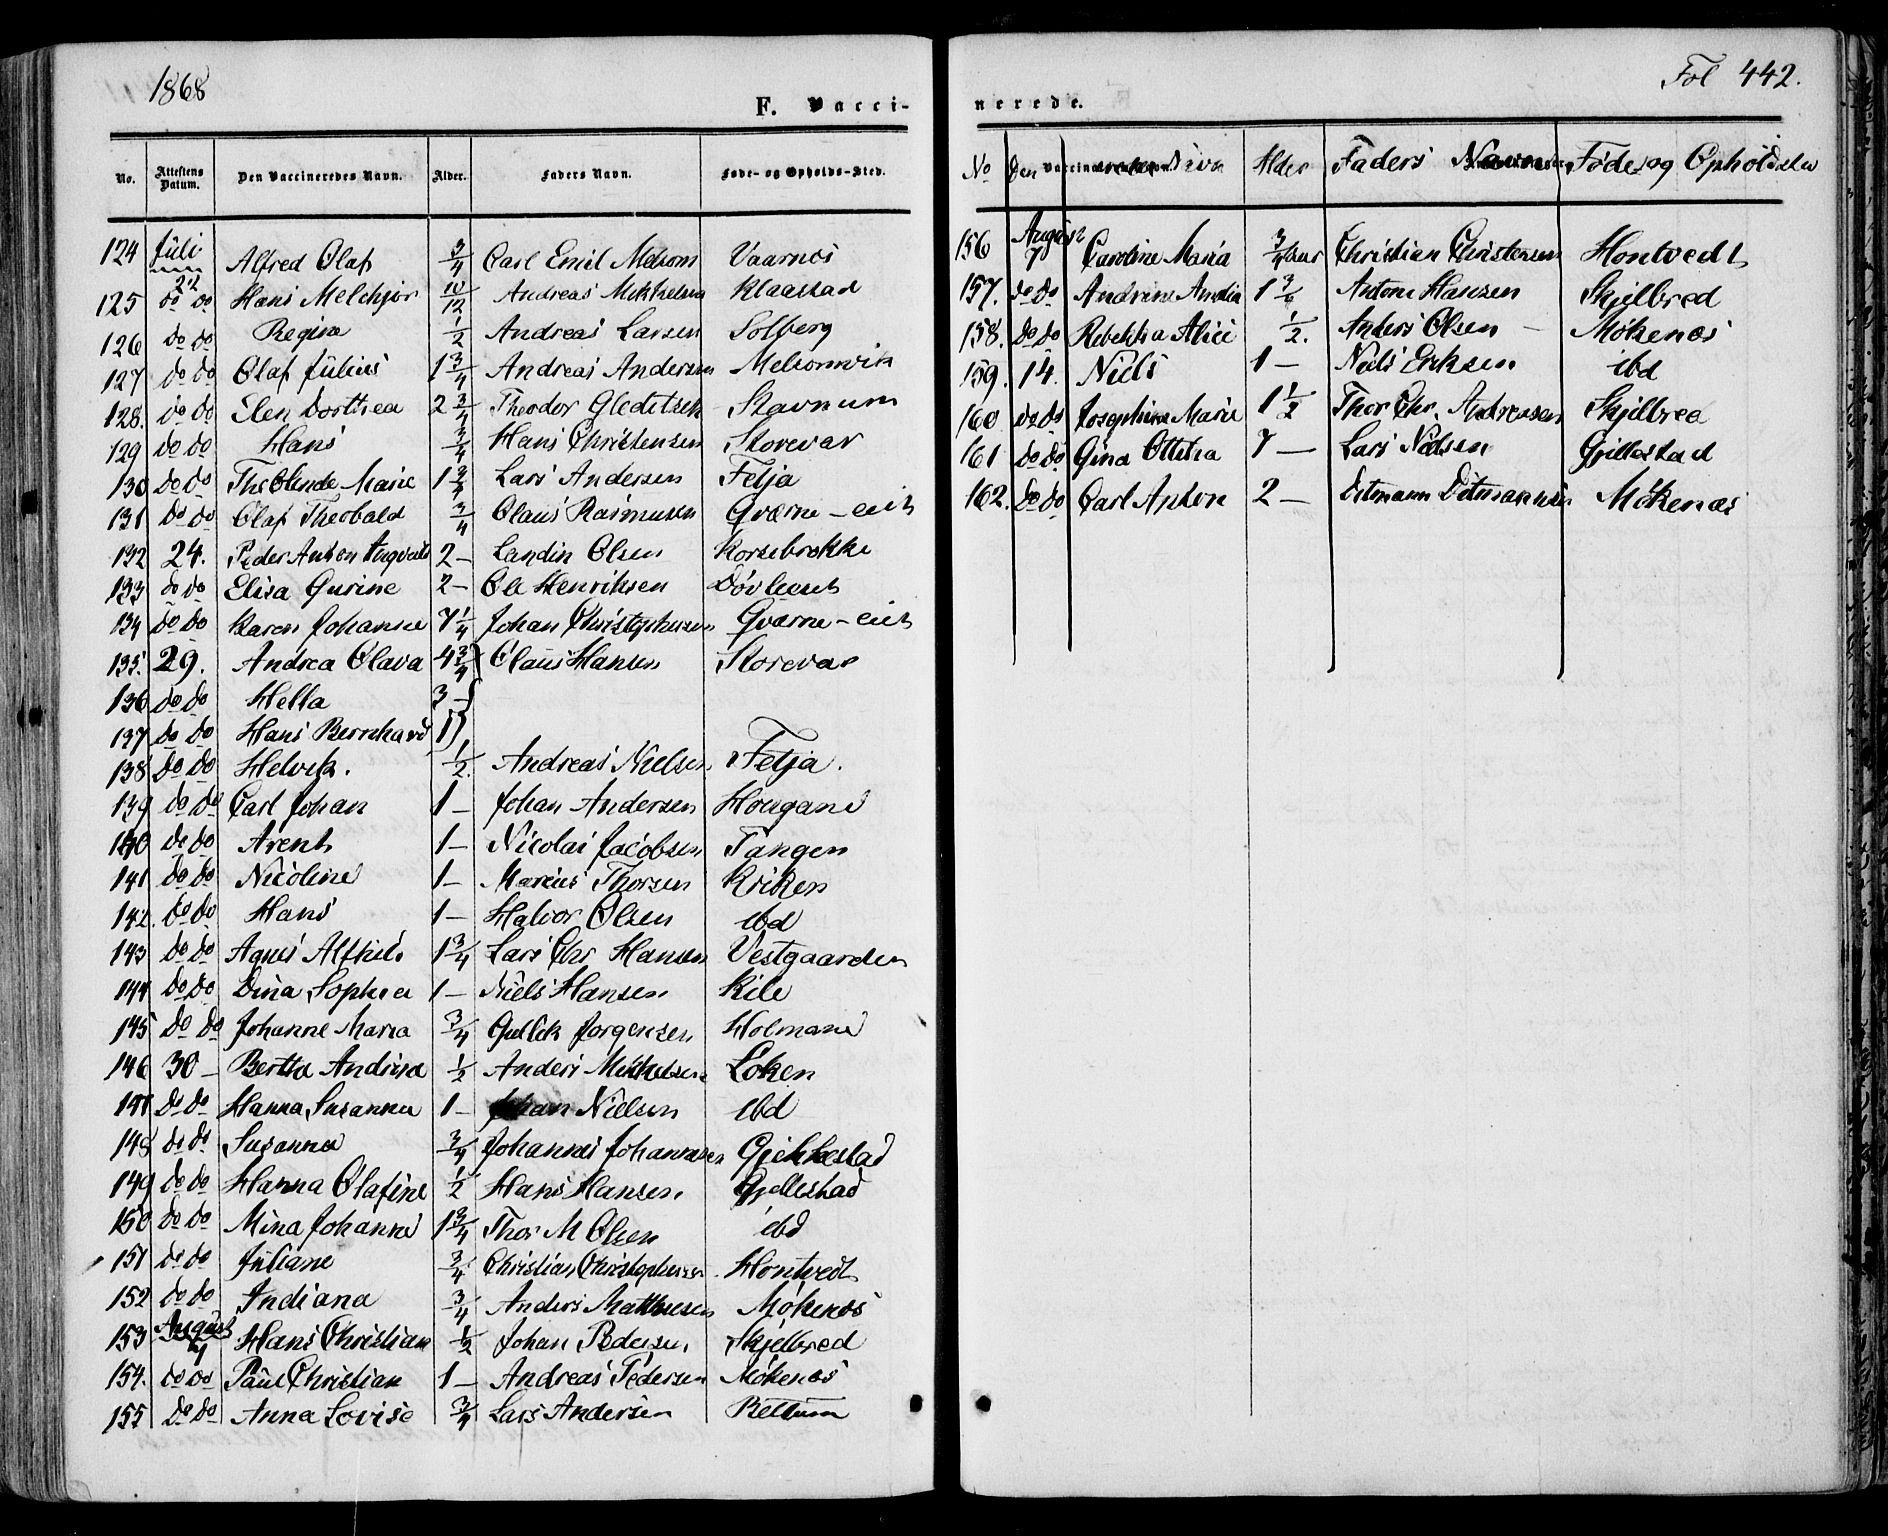 1868
F. Vacci-
No. Attestens Datum. Den Vaccineredes Navn. Alder. Faders Navn. Føde- og Opholds-Sted.
124 Juli 22 Alfred Olaf 3/4 Carl Emil Melsom Vaarnes
125 do do Hans Melchjor 10/12 Andreas Mikkelsen Klaastad
126 do do Regine 1/2 Andreas Larsen Solberg
127 do do Olaf Julius 1 3/4 Andreas Andersen Melsomvik
128. do do Elen Dorthea 2 3/4 Theodor Gleditsch Stavnum
129 do do Hans 3/4 Hans Christensen Storevar
130 do do Marie 1 3/4 Lars Andersen Fetja
131 do do Olaf Theobald 3/4 Claus Rasmusen Qværne-eie
132 24. Peder Anton 2 - Landin Olsen Korsebrekke
133 do do Elisa Gurine 2 - Ole Henriksen
134 do do Karen Johanne 7 1/4 Johan Christophersen Qværne-eie
135. 29. Andrea Olava 4 3/4 Claus Hansen Storevar
136 do do Hella 3 -
137 do do Hans Bernhard 1
138 do do Helvik. 1/2. Andreas Nielsen Fetja.
139 do do Carl Johan 1 - Johan Andersen Hougane
140 do do Arent 1 - Nicolai Jacobsen Tangen
141 do do Nicoline 1 - Marcus Thorsen Kriken
142. do do Hans 1 - Halvor Olsen ibd
143 do do Agnes Alfhild 1 3/4 Lars Chr Hansen Vestgaarden
144 do do Dina Sophie 1 - Niels Hansen Kile
145 do do Johanne Maria 3/4 Gullik Jørgensen Holmane
146 30 - Bertha Andrea 1/2 Anders Mikkelsen Løken
147 do do Hanna Susanna 1 - Johan Nielsen ibd
148 do do Susanna 3/4 Johannes Johannesen Gjekkestad
149 do do Hanna Olafine 1/2 Hans Hansen Gjellestad
150 do do Mina Johanne 1 3/4 Thor M Olsen ibd
151 do do Juliane 3/4 Christian Christophersen Hontvedt
152 do do Indiana 3/4 Anders Mathiesen Møkenæs
153 August 4 Hans Christian 1/2 Johan Pedersen Skjelbred
154. do do Paul Christian 1 - Andreas Pedersen Møkenæs
155 do do Anna Lovise 3/4 Lars Andersen Rettum
Fol 442.
nerede.
No Den Alder Faders Navn Føde og Opholdste
156 August 7 Caroline Maria 3/4 aar Christian Christensen Hontvedt
157. do do Andrine Amalia 1 3/4 Anton Hansen Skjelbred
158. do do Rebekka Alice 1/2. Anders Olsen - Møkenæs
159. 14. Niels 1 - Niels Eriksen ibd
160 do do Josephine Marie 1 1/2 Thor Chr. Andreasen Skjelbred
161 do do Gina Ottilia 7 - Lars Nielsen Gjillestad
162. do do Carl Anton 2 - Ditmann Ditmannsen Møkenæs